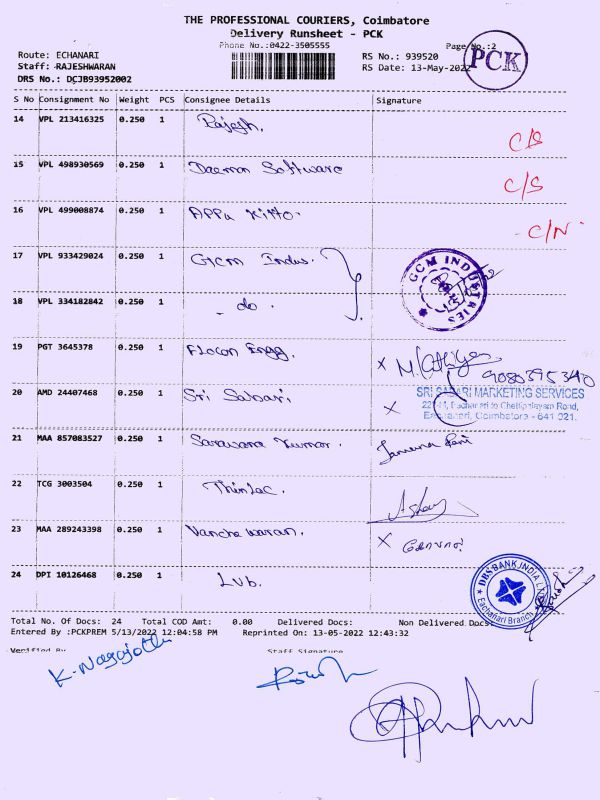 THE PROFESSIONAL COURIERS, Coimbatore
Delivery Runsheet - PCK
Phone No.:0422-3505555
Page No.:2
PCK
Route: ECHANARI
RS No.: 939520
Staff: RAJESHWARAN
RS Date: 13-May-2022
DRS No.: DCJB93952002
S No Consignment No Weight PCS Consignee Details Signature
14 VPL 213416325 0.250 1 Rajesh.
C/S
15 VPL 498930569 0.250 1 Daemon Software
C/S
16 VPL 499008874 0.250 1 Appu Kitto.
- C/N
17 VPL 933429024 0.250 1 GCM Indus.
GCM INDUSTRIES
18 VPL 334182842 0.250 1 - do.
19 PGT 3645378 0.250 1 Flocon Engg.
x M.
9080395340
20 AMD 24407468 0.250 1 Sri Sabari.
x
SRI SABARI MARKETING SERVICES
Echanari to Chettipalayam Road,
Eachanari, Coimbatore - 641 021.
21 MAA 857083527 0.250 1 Saravana Kumar.
Jamuna Rani
22 TCG 3003504 0.250 1 Thinlac.
23 MAA 289243398 0.250 1 Vancheswaran.
x
24 DPI 10126468 0.250 1 Lvb.
DBS BANK INDIA
Eachanari Branch
Total No. Of Docs: 24 Total COD Amt: 0.00 Delivered Docs: Non Delivered Docs:
Entered By :PCKPREM 5/13/2022 12:04:58 PM Reprinted On: 13-05-2022 12:43:32
Verified By
Staff Signature
K. Nagajothi